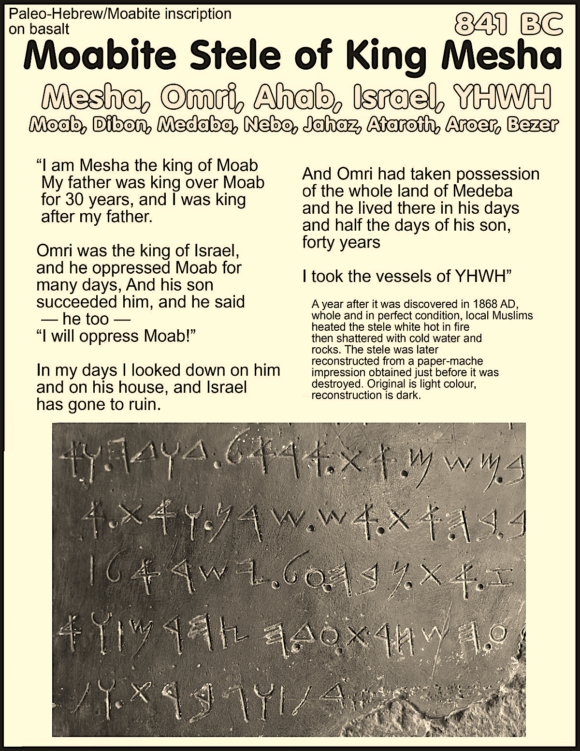 Paleo-Hebrew/Moabite inscription
on basalt
841 BC
Moabite Stele of King Mesha
Mesha, Omri, Ahab, Israel, YHWH
Moab, Dibon, Medaba, Nebo, Jahaz, Ataroth, Aroer, Bezer
“I am Mesha the king of Moab
My father was king over Moab
for 30 years, and I was king
after my father.
Omri was the king of Israel,
and he oppressed Moab for
many days, And his son
succeeded him, and he said
— he too —
“I will oppress Moab!”
In my days I looked down on him
and on his house, and Israel
has gone to ruin.
And Omri had taken possession
of the whole land of Medeba
and he lived there in his days
and half the days of his son,
forty years
I took the vessels of YHWH”
A year after it was discovered in 1868 AD,
whole and in perfect condition, local Muslims
heated the stele white hot in fire
then shattered with cold water and
rocks. The stele was later
reconstructed from a paper-mache
impression obtained just before it was
destroyed. Original is light colour,
reconstruction is dark.